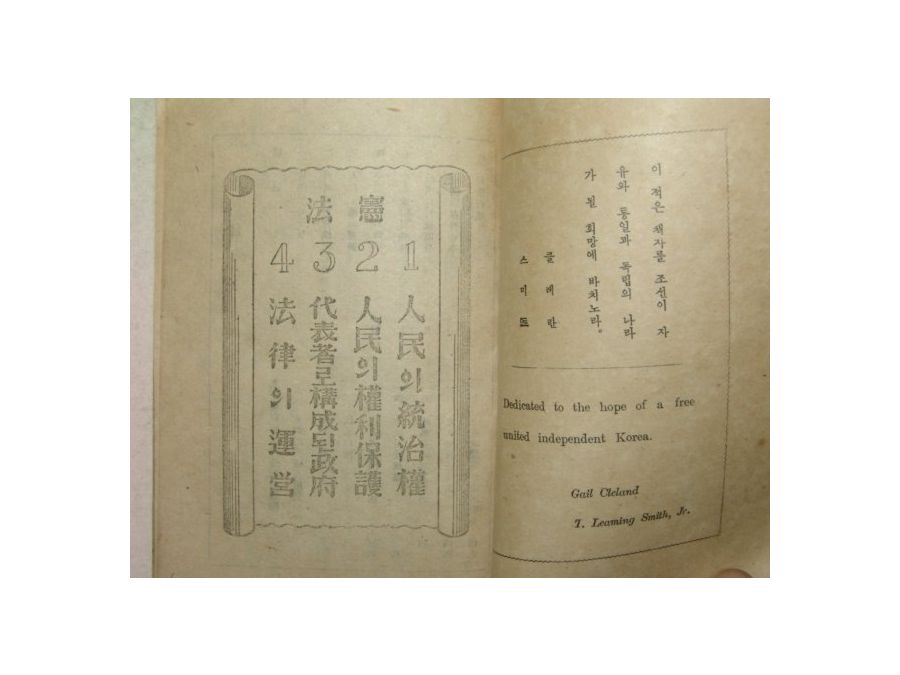 憲法
1 人民의統治權
2 人民의權利保護
3 代表者로構成된政府
4 法律의運営
이 적은 책자를 조선이 자
유와 통일과 독립의 나라
가 될 희망에 바치노라.
클레란
스미트
Dedicated to the hope of a free
united independent Korea.
Gail Cleland
T. Leaming Smith, Jr.